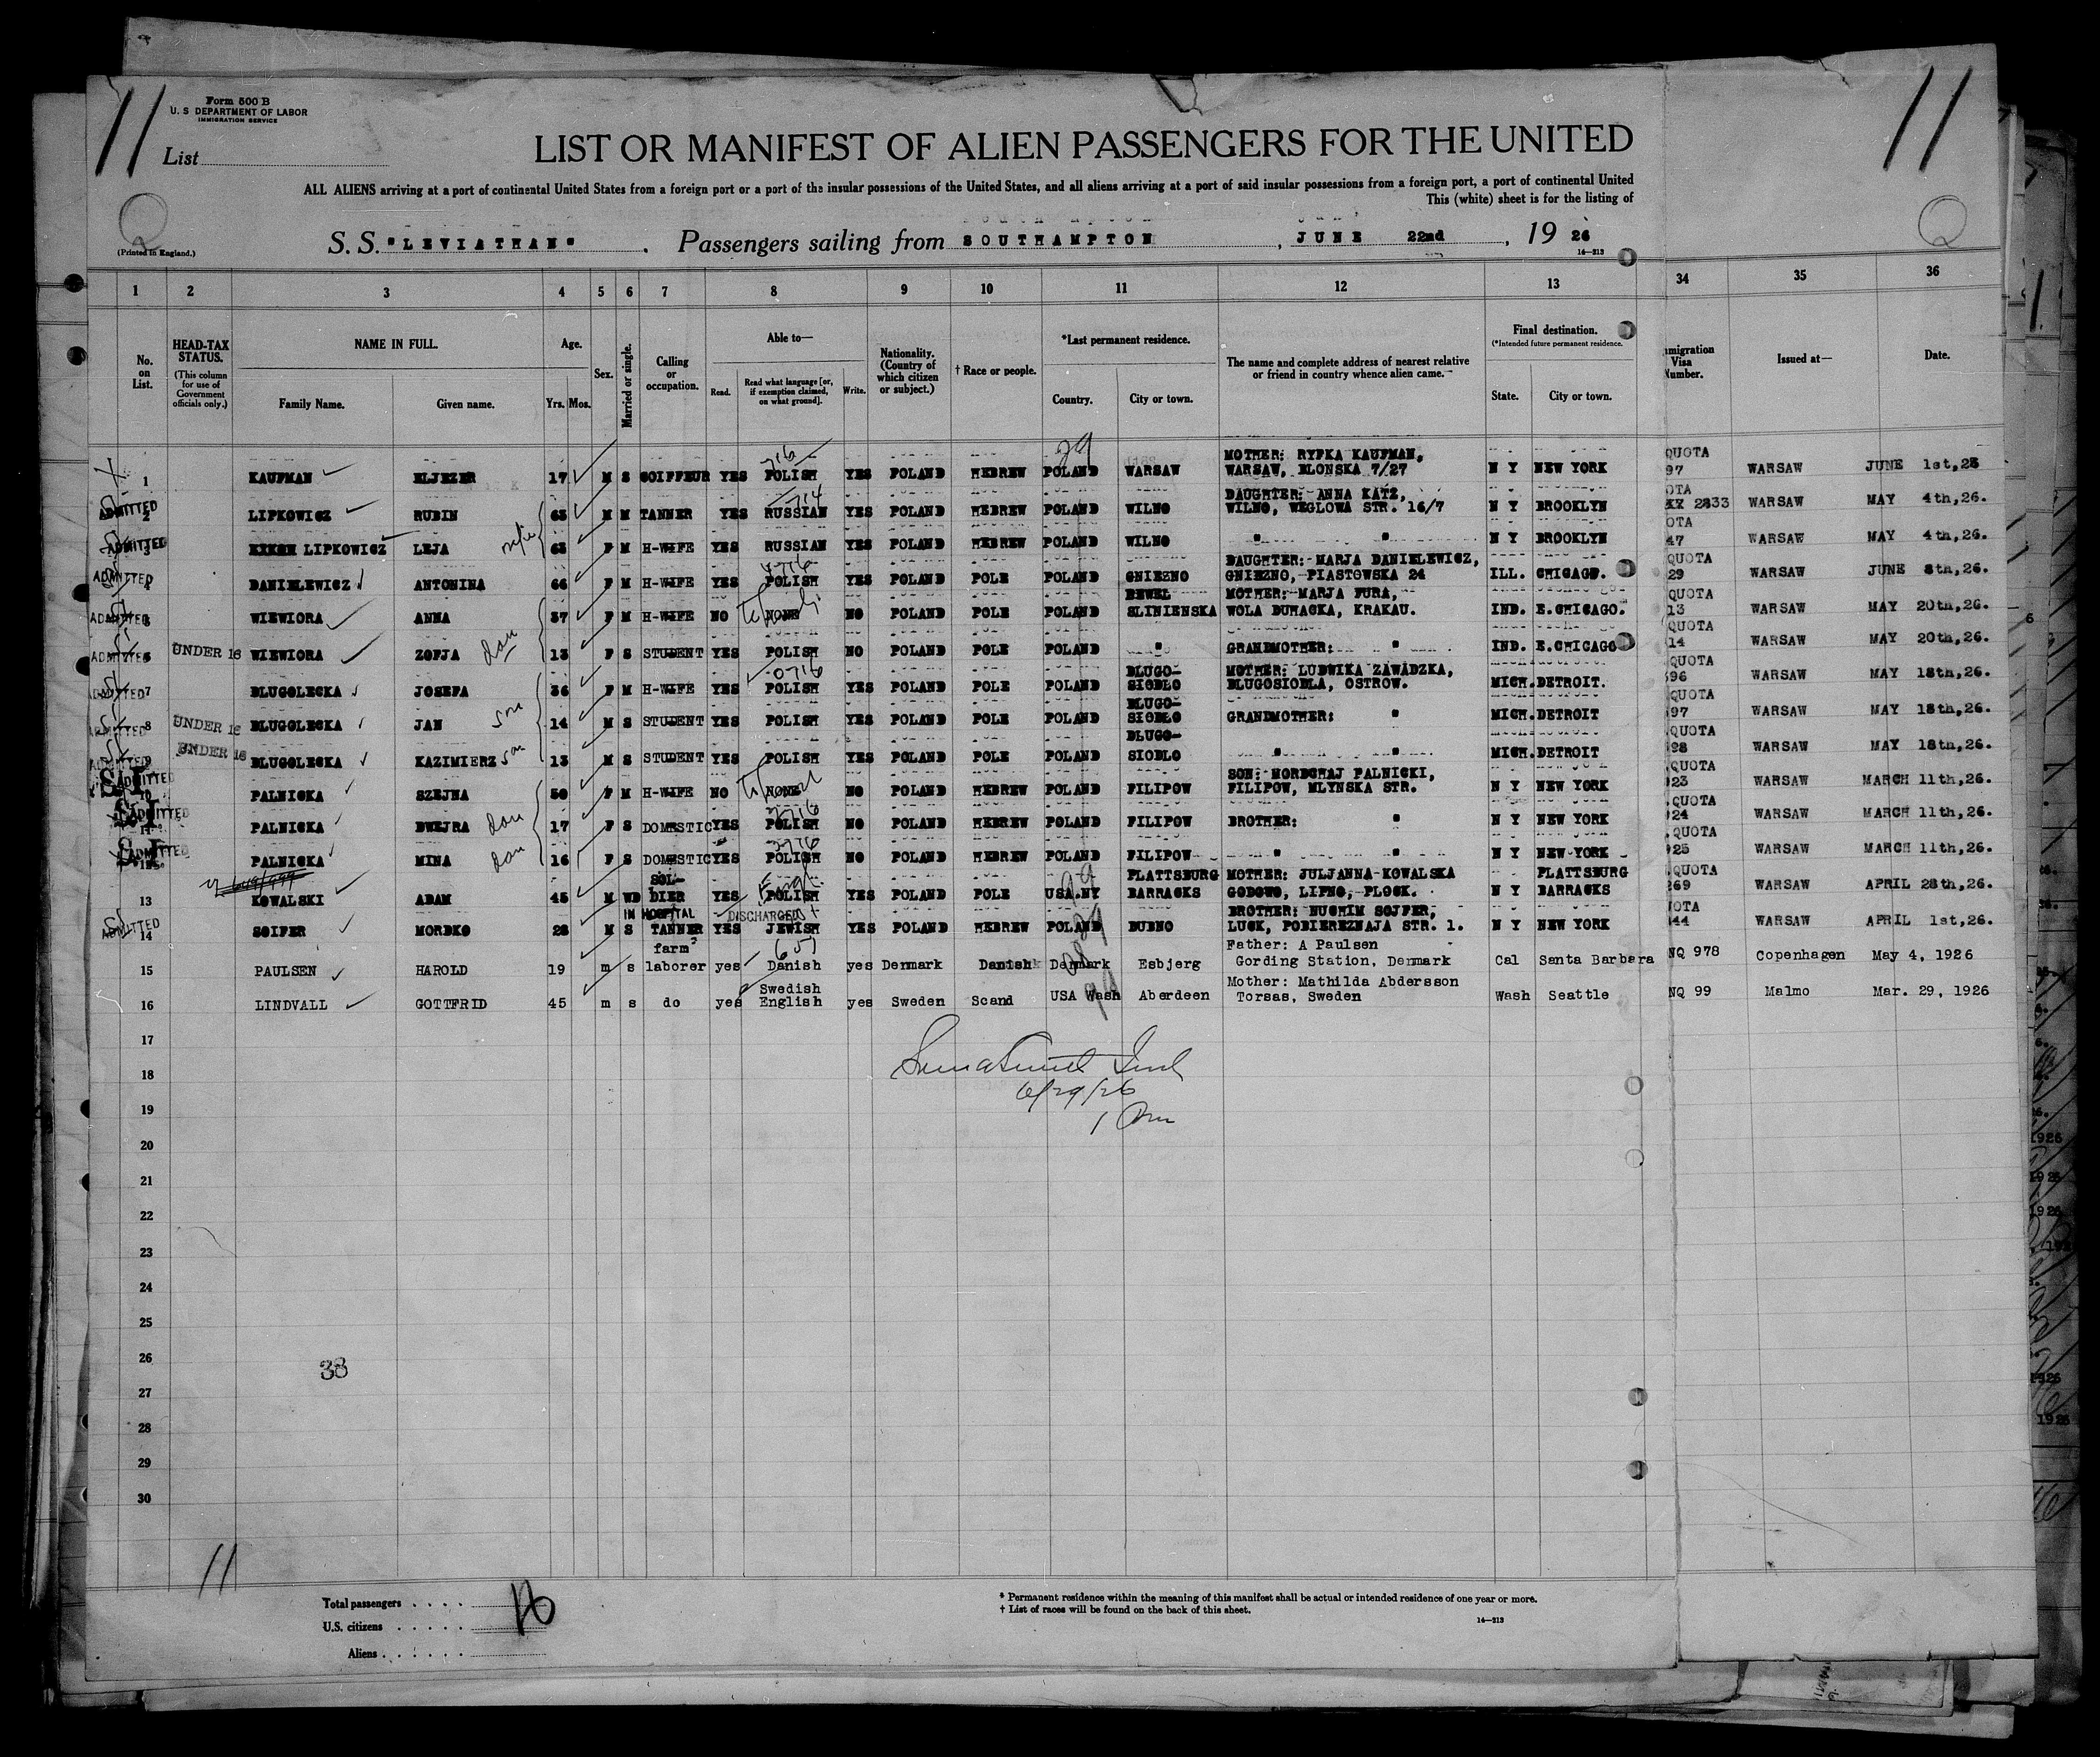 11
Form 500 B
U. S DEPARTMENT OF LABOR
IMMIGRATION SERVICE
List
11
LIST OR MANIFEST OF ALIEN PASSENGERS FOR THE UNITED
ALL ALIENS arriving at a port of continental United States from a foreign port or a port of the insular possessions of the United States, and all aliens arriving at a port of said insular possessions from a foreign port, a port of continental United
This (white) sheet is for the listing of
Q
Q
(Printed in England.)
S. S. "LEVIATHAN" . Passengers sailing from SOUTHAMPTON , JUNE 22nd , 19 26
14—213
1 2 3 4 5 6 7 8 9 10 11 12 13 34 35 36
No. on List.
HEAD-TAX STATUS.
(This column for use of Government officials only.)
NAME IN FULL.
Family Name. Given name.
Age.
Yrs. Mos.
Sex.
Married or single.
Calling or occupation.
Able to—
Read. Read what language [or, if exemption claimed, on what ground]. Write.
Nationality. (Country of which citizen or subject.)
† Race or people.
*Last permanent residence.
Country. City or town.
The name and complete address of nearest relative or friend in country whence alien came.
Final destination.
(*Intended future permanent residence.
State. City or town.
mmigration Visa Number.
Issued at—
Date.
1 KAUFMAN ELJEZER 17 M S COIFFEUR YES POLISH YES POLAND HEBREW POLAND WARSAW MOTHER: RYFKA KAUFMAN, WARSAW, BLONSKA 7/27 N Y NEW YORK QUOTA 97 WARSAW JUNE 1st,26
ADMITTED 2 LIPKOWICZ RUBIN 65 M M TANNER YES RUSSIAN YES POLAND HEBREW POLAND WILNO DAUGHTER: ANNA KATZ, WILNO, WEGLOWA STR. 16/7 N Y BROOKLYN OTA 2833 WARSAW MAY 4th,26.
ADMITTED 3 LIPKOWICZ LEJA wife 63 F M H-WIFE YES RUSSIAN YES POLAND HEBREW POLAND WILNO " " N Y BROOKLYN OTA 47 WARSAW MAY 4th,26.
ADMITTED 4 DANIELEWICZ ANTONINA 66 F M H-WIFE YES POLISH YES POLAND POLE POLAND GNIEZNO DAUGHTER: MARJA DANIELEWICZ, GNIEZNO, PIASTOWSKA 24 ILL. CHICAGO. QUOTA 29 WARSAW JUNE 8th,26.
ADMITTED 5 WIEWIORA ANNA 37 F M H-WIFE NO NONE NO POLAND POLE POLAND SLINIENSKA MOTHER: MARJA FURA, WOLA DUHACKA, KRAKAU. IND. E.CHICAGO. QUOTA 13 WARSAW MAY 20th,26.
ADMITTED 6 UNDER 16 WIEWIORA ZOFJA dau 13 F S STUDENT YES POLISH NO POLAND POLE POLAND " GRANDMOTHER: " IND. E.CHICAGO QUOTA 14 WARSAW MAY 20th,26.
ADMITTED 7 DLUGOLECKA JOSEFA 36 F M H-WIFE YES POLISH YES POLAND POLE POLAND DLUGO-SIODLO MOTHER: LUDWIKA ZAWADZKA, DLUGOSIODLA, OSTROW. MICH. DETROIT. QUOTA 96 WARSAW MAY 18th,26.
ADMITTED 8 UNDER 16 DLUGOLECKA JAN son 14 M S STUDENT YES POLISH YES POLAND POLE POLAND DLUGO-SIODLO GRANDMOTHER: " MICH. DETROIT QUOTA 97 WARSAW MAY 18th,26.
ADMITTED 9 UNDER 16 DLUGOLECKA KAZIMIERZ son 13 M S STUDENT YES POLISH YES POLAND POLE POLAND DLUGO-SIODLO " " MICH. DETROIT QUOTA 98 WARSAW MAY 18th,26.
S.I. ADMITTED 10 PALNICKA SZEJNA 50 F M H-WIFE NO NONE NO POLAND HEBREW POLAND FILIPOW SON: MORDCHAJ PALNICKI, FILIPOW, MLYNSKA STR. N Y NEW YORK QUOTA 23 WARSAW MARCH 11th,26.
S.I. ADMITTED 11 PALNICKA DWEJRA dau 17 F S DOMESTIC YES POLISH NO POLAND HEBREW POLAND FILIPOW BROTHER: " N Y NEW YORK QUOTA 24 WARSAW MARCH 11th,26.
S.I. ADMITTED 12 PALNICKA MINA dau 16 F S DOMESTIC YES POLISH NO POLAND HEBREW POLAND FILIPOW " " N Y NEW YORK QUOTA 25 WARSAW MARCH 11th,26.
13 KOWALSKI ADAM 45 M WD SOL-DIER YES POLISH YES POLAND POLE USA.NY PLATTSBURG BARRACKS MOTHER: JULJANNA KOWALSKA GODOWO, LIPNO, PLOCK. N Y PLATTSBURG BARRACKS QUOTA 269 WARSAW APRIL 28th,26.
IN HOSPITAL DISCHARGED
ADMITTED 14 SOIFER MORDKO 28 M S TANNER YES JEWISH YES POLAND HEBREW POLAND DUBNO BROTHER: NUCHIM SOJFER, LUCK, POBIEREZNAJA STR. 1. N Y NEW YORK OTA 44 WARSAW APRIL 1st,26.
15 PAULSEN HAROLD 19 m s farm laborer yes Danish yes Denmark Danish Denmark Esbjerg Father: A Paulsen Gording Station, Denmark Cal Santa Barbara NQ 978 Copenhagen May 4, 1926
16 LINDVALL GOTTFRID 45 m s do yes Swedish English yes Sweden Scand USA Wash Aberdeen Mother: Mathilda Abdersson Torsas, Sweden Wash Seattle NQ 99 Malmo Mar. 29, 1926
17
18
6/29/26
19
20
21
22
23
24
25
26
38
27
28
29
30
11
Total passengers . . . . 16
U.S. citizens . . . . .
Aliens . . . . . .
* Permanent residence within the meaning of this manifest shall be actual or intended residence of one year or more.
† List of races will be found on the back of this sheet.
14—213